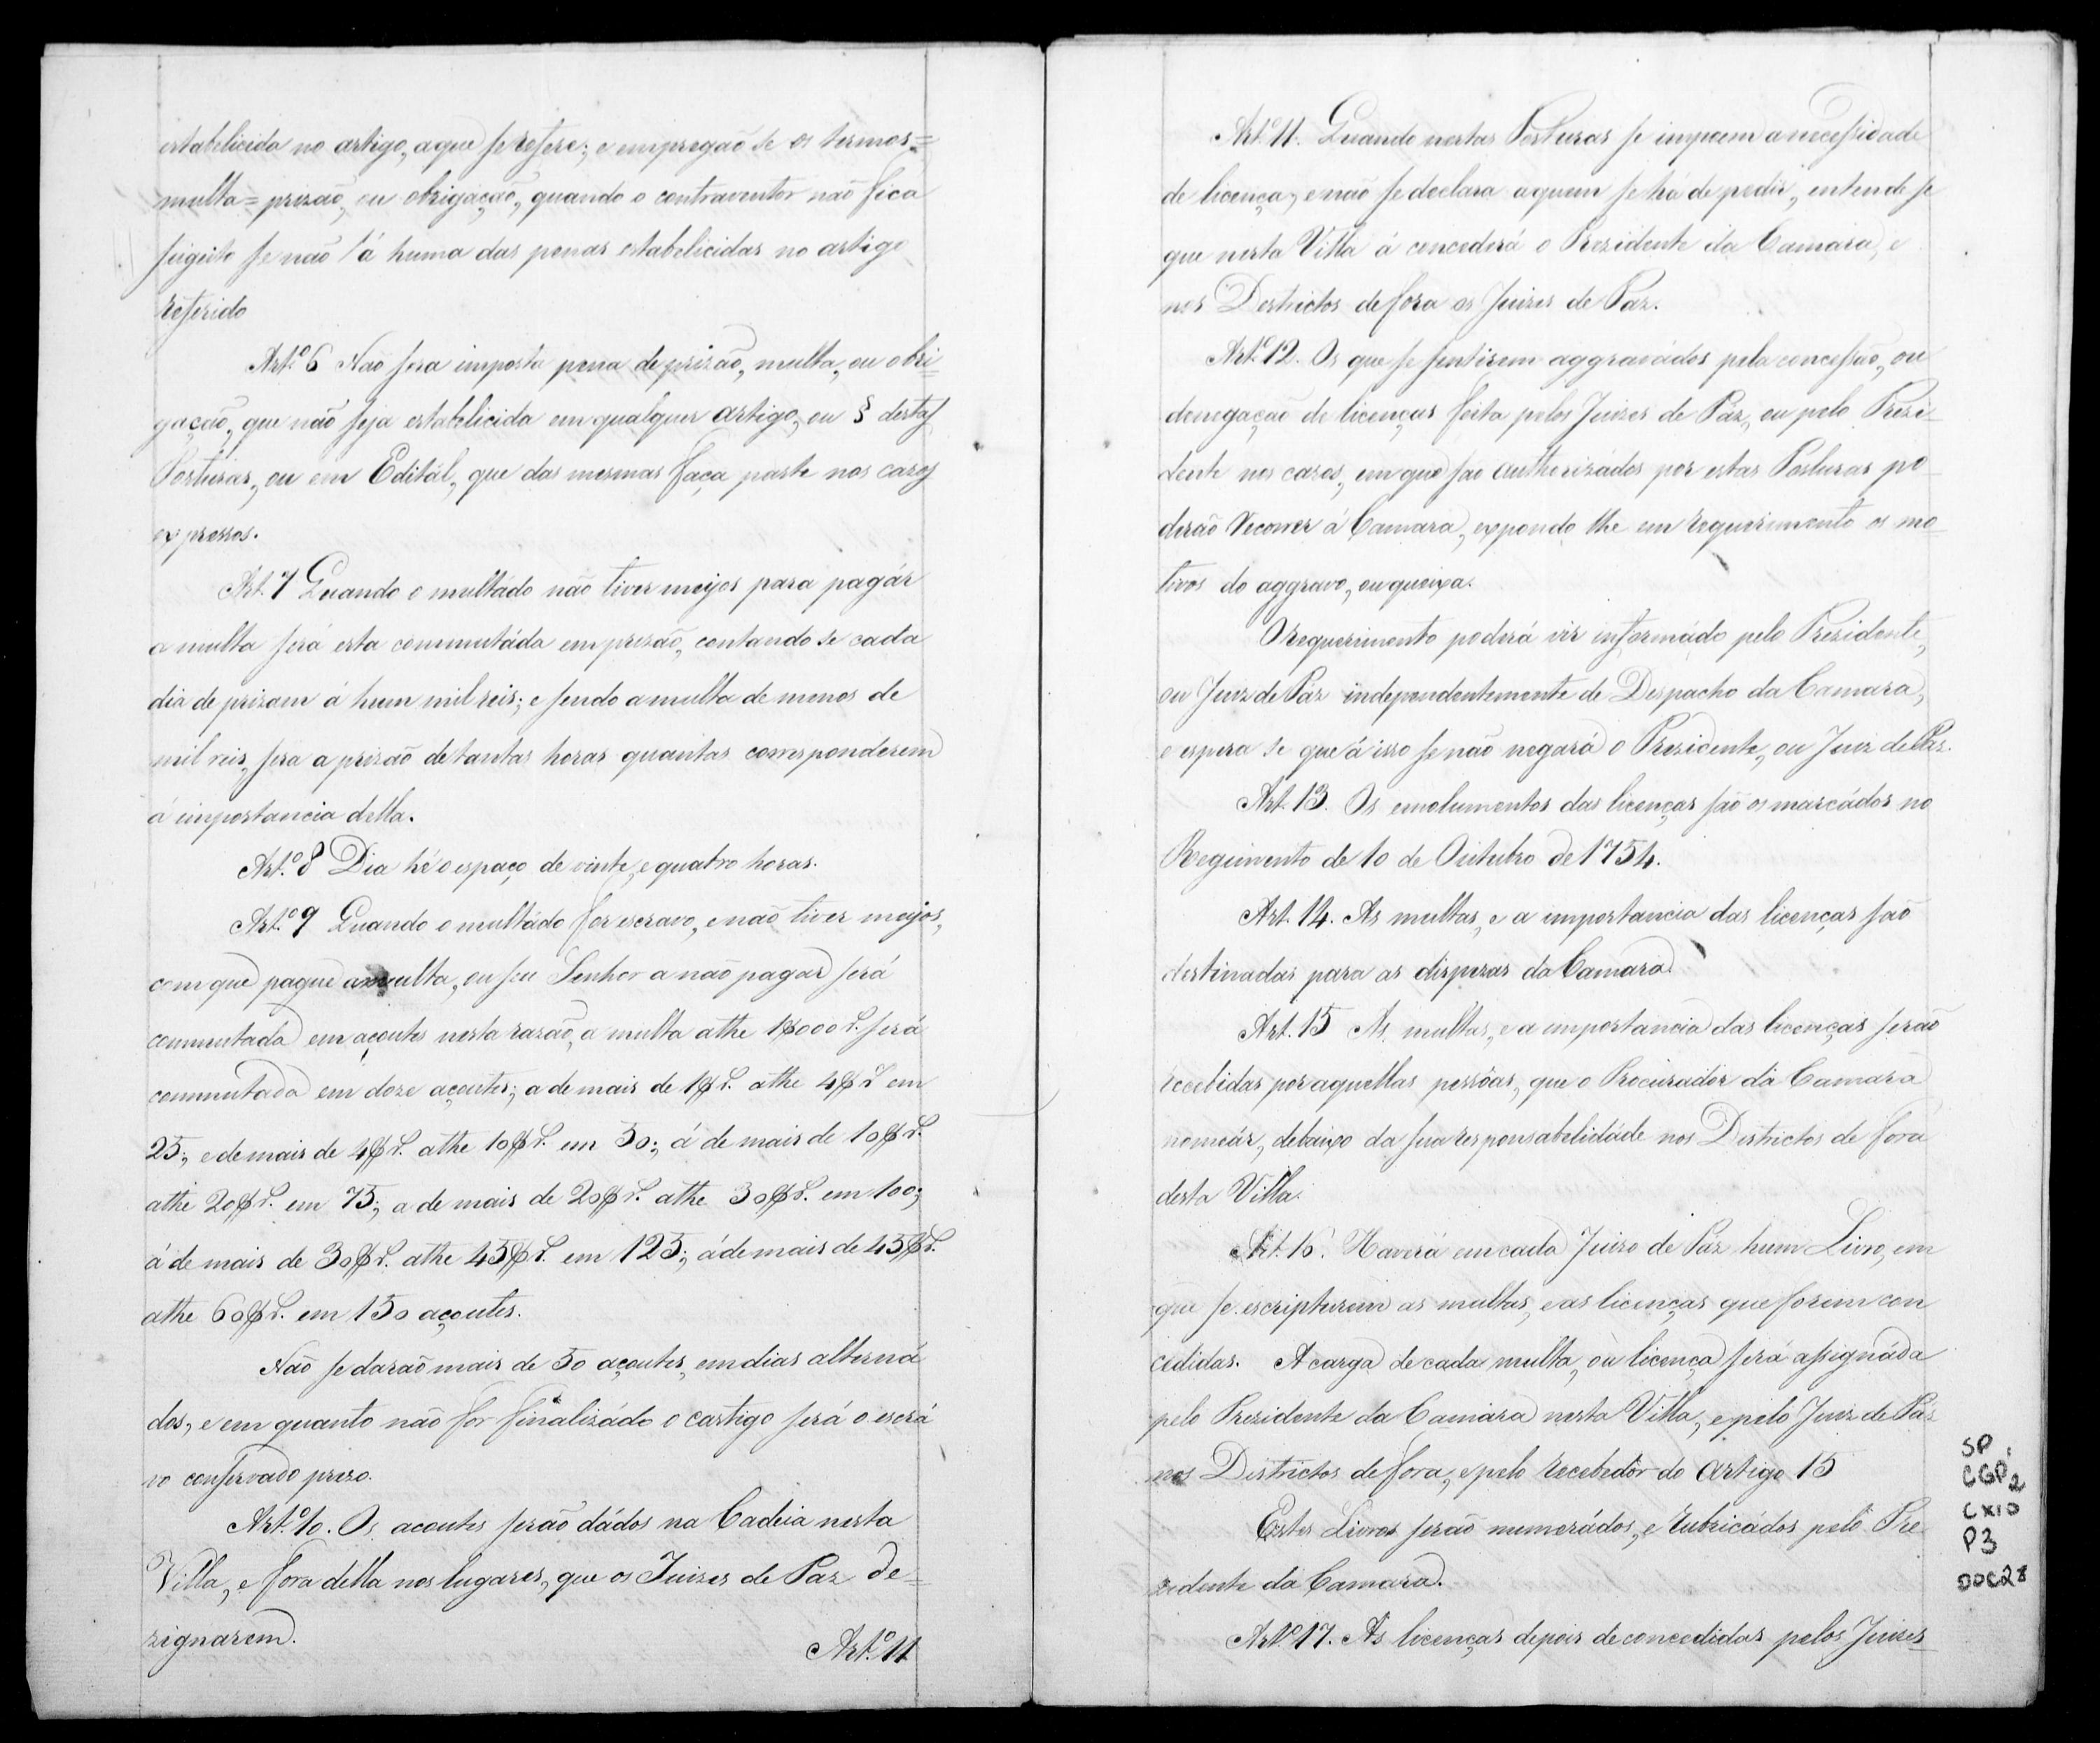 estabelicida no artigo, aque se refere; e empregaõ se os termos=
multa= prizaõ, ou obrigaçaõ, quando o contraventor naõ fica
sugeito se naõ á huma das penas estabelicidas no artigo
referido
Art.º 6 Naõ sera imposta pena de prizaõ, multa, ou obri=
gaçaõ, que naõ seja estabelicida em qualquer artigo, ou § destas
Posturas, ou em Editál, que das mesmas faça parte nos cazos
expressos.
Art. 7 Quando o multádo naõ tiver meijos para pagár
a multa será esta commutáda em prizaõ, contando se cada
dia de prizam á hum mil reis; e sendo a multa de menos de
mil reis, sera a prizaõ de tantas horas quantas corresponderem
á importancia della.
Art.º 8 Dia hé o espaço de vinte, e quatro horas.
Art.º 9 Quando o multádo for escravo, e naõ tiver meijos,
com que pague a multa, ou seu Senhor a naõ pagar será
commutada em açoutes nesta razaõ, a multa athe 1$000 r. será
commutada em doze açoutes; a de mais de 1$ r. athe 4$ r em
25; e de mais de 4$ r. athe 10$ r. em 50; á de mais de 10$ r.
athe 20$ r. em 75; a de mais de 20$ r. athe 30$ r. em 100;
á de mais de 30$ r. athe 45$ r. em 125; á de mais de 45$ r.
athe 60$ r. em 150 açoutes.
Naõ se daraõ mais de 50 açoutes, em dias alterná
dos, e em quanto naõ for finalizádo o castigo será o escrá
vo conservado prezo.
Art.º 10. Os acoutes seraõ dádos na Cadeia nesta
Villa, e fora della nos lugares, que os Juizes de Paz de=
zignarem.
Art.º 11
Art.º 11. Quando nestas Posturas se impoem a necessidade
de licença, e naõ se declara aquem se há de pedir, entende se
que nesta Villa á concederá o Prezidente da Camara, e
nos Destrictos de fora os Juizes de Paz.
Art.º 12. Os que se sentirem aggravádos pela concessaõ, ou
denegaçaõ de licenças feita pelos Juizes de Paz, ou pelo Prezi-
dente nos cazos, em que saõ authorizádos por estas Posturas po
deraõ recorrer á Camara, expondo lhe em requerimento os mo
tivos do aggravo, ou queixa.
O requerimento poderá vir informádo pelo Prezidente,
ou Juiz de Páz independentemente de Despacho da Camara,
e espera se que á isso se naõ negará o Prezidente, ou Juiz de Páz.
Art. 13. Os emolumentos das licenças saõ os marcádos no
Regimento de 10 de Outubro de 1754.
Art. 14. As multas, e a importancia das licenças saõ
destinadas para as dispezas da Camara.
Art. 15 As multas, e a importancia das licenças seraõ
recebidas por aquellas pessôas, que o Procurador da Camara
nomeár, debaixo da sua responsabelidáde nos Districtos de fora
desta Villa.
Art. 16. Haverá em cada Juizo de Páz hum Livro, em
que se escripturem as multas, e as licenças que forem con
cedidas. A carga de cada multa, ou licença será assignáda
pelo Prezidente da Camara nesta Villa, e pelo Juiz de Páz
nos Districtos de fora, e pelo recebedor do Artigo 15
Estes Livros seraõ numerádos, e rubricádos pelo Pre
zidente da Camara.
Art.º 17. As licenças depois de concedidas pelos Juizes
SP.
CGP2
CX10
P3
DOC28